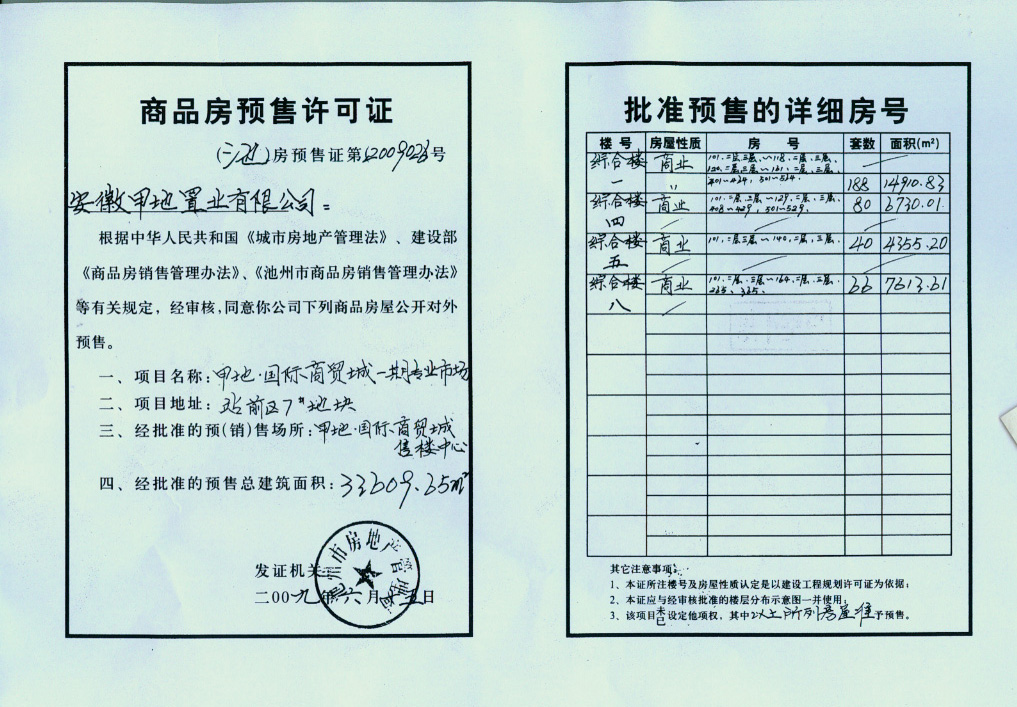 商品房预售许可证
(三池)房预售证第2009023号
安徽甲地置业有限公司：
根据中华人民共和国《城市房地产管理法》、建设部
《商品房销售管理办法》、《池州市商品房销售管理办法》
等有关规定，经审核，同意你公司下列商品房屋公开对外
预售。
一、项目名称：甲地·国际商贸城一期专业市场
二、项目地址：站前区7#地块
三、经批准的预(销)售场所：甲地·国际商贸城
售楼中心
四、经批准的预售总建筑面积：33609.65m²
池州市房地产管理局
发证机关
二00九年六月 五日
批准预售的详细房号
楼 号 房屋性质 房 号 套数 面积(m²)
综合楼一 商业 101.二层三层~118.二层.三层.
120.二层三层~161.二层.三层.
〃 401~434, 501~534. 188 14910.83
综合楼四 商业 101.二层.三层~129.二层.三层. 80 6730.01
408~429, 501~529.
综合楼五 商业 101.二层三层~140.二层.三层. 40 4355.20
综合楼八 商业 101.二层.三层~164.二层.三层. 66 7613.61
265、365.
其它注意事项：
1、本证所注楼号及房屋性质认定是以建设工程规划许可证为依据；
2、本证应与经审核批准的楼层分布示意图一并使用；
3、该项目未已设定他项权，其中以上所列房屋准予预售。